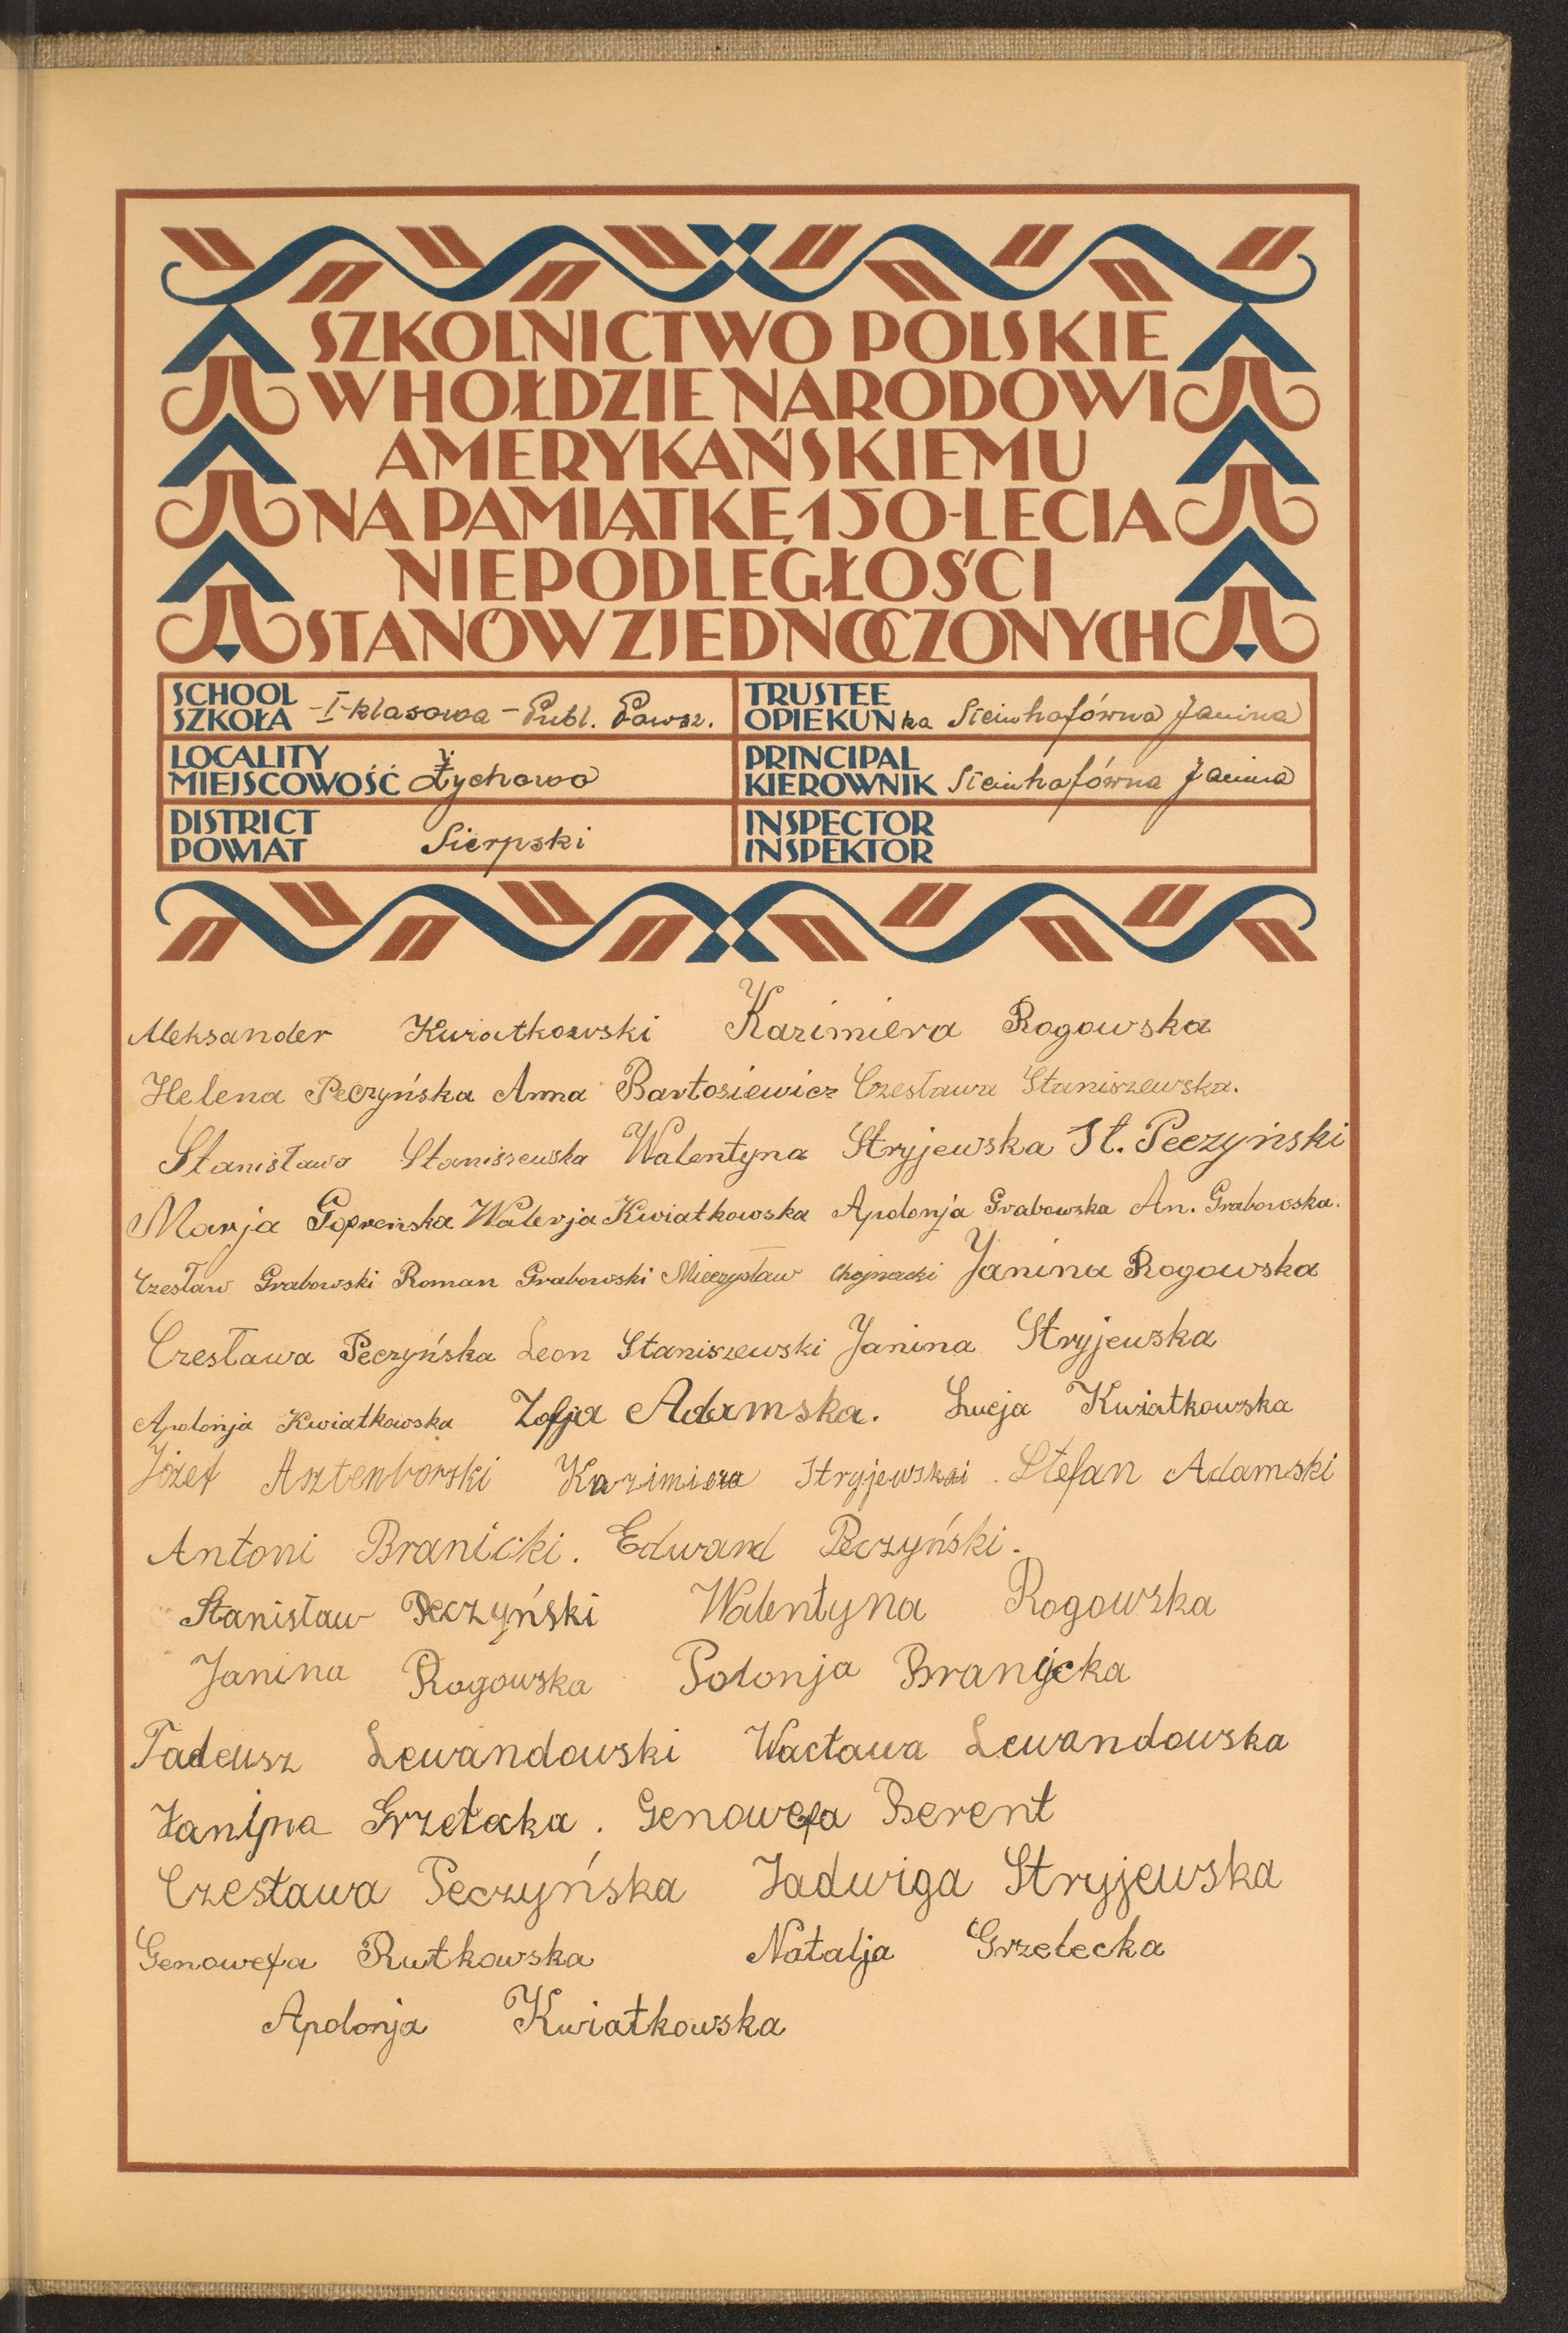 SZKOLNICTWO POLSKIE
W HOŁDZIE NARODOWI
AMERYKAŃSKIEMU
NA PAMIĄTKĘ 150-LECIA
NIEPODLEGŁOŚCI
STANÓW ZJEDNOCZONYCH
SCHOOL
SZKOŁA -I-klasowa - Publ. Powsz.
TRUSTEE
OPIEKUNka Steinhofówna Janina
LOCALITY
MIEJSCOWOŚĆ Żychowo
PRINCIPAL
KIEROWNIK Steinhofówna Janina
DISTRICT
POWIAT Sierpski
INSPECTOR
INSPEKTOR
Aleksander Kwiatkowski Kazimiera Rogowska
Helena Peczyńska Anna Bartosiewicz Czesława Staniszewska.
Stanisława Staniszewska Walentyna Stryjewska St. Peczyński
Marja Walerja Kwiatkowska Apolonja Grabowska An. Grabowska.
Czesław Grabowski Roman Grabowski Mieczysław Chojnacki Janina Rogowska
Czesława Peczyńska Leon Staniszewski Janina Stryjewska
Apolonja Kwiatkowska Zofja Adamska. Łucja Kwiatkowska
Józef Asztenborski Kazimiera Stryjewska. Stefan Adamski
Antoni Branicki. Edward Peczyński.
Stanisław Peczyński Walentyna Rogowska
Janina Rogowska Polonja Branicka
Tadeusz Lewandowski Wacława Lewandowska
Janina Grzelacka. Genowefa Berent
Czesława Peczyńska Jadwiga Stryjewska
Genowefa Rutkowska Natalja Grzelecka
Apolonja Kwiatkowska